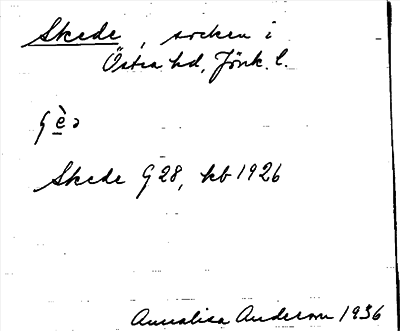 Skede, socken i
Östra hd, Jönk. l.
Skede G 28, kb 1926
Annalisa Anderson 1936